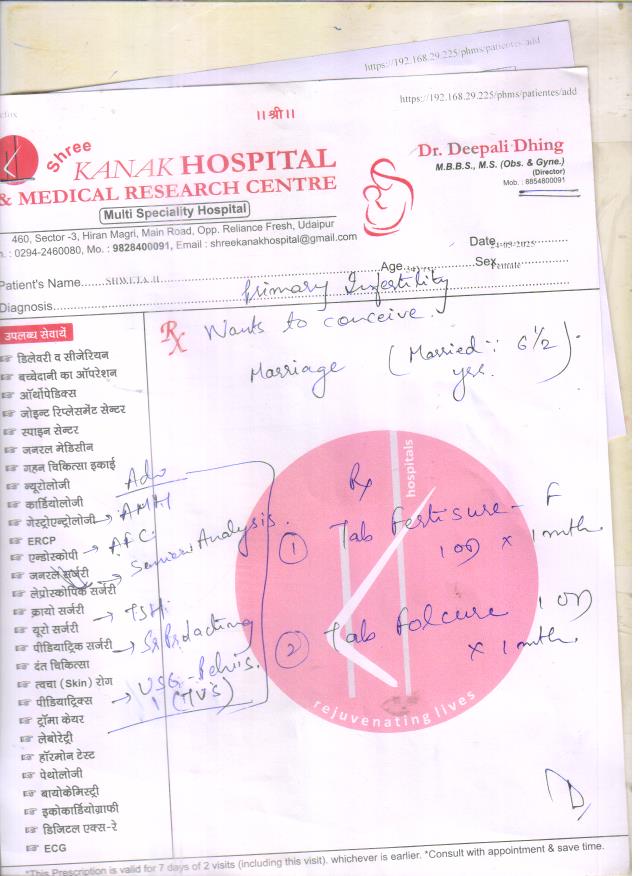 https://192.168.29.225/phms/patientes/add
https://192.168.29.225/phms/patientes/add
।।श्री।।
Shree
KANAK HOSPITAL
& MEDICAL RESEARCH CENTRE
Multi Speciality Hospital
460, Sector -3, Hiran Magri, Main Road, Opp. Reliance Fresh, Udaipur
.: 0294-2460080, Mo. : 9828400091, Email : shreekanakhospital@gmail.com
Dr. Deepali Dhing
M.B.B.S., M.S. (Obs. & Gyne.)
(Director)
Mob. : 8854800091
Date 24-09-2025
Patient's Name SHWETA JI Age Sex Female
Diagnosis Primary Infertility
Rx Wants to conceive.
Marriage (Married :: 6 1/2 yrs.)
उपलब्ध सेवायें
डिलेवरी व सीजेरियन
बच्चेदानी का ऑपरेशन
ऑर्थोपेडिक्स
जोइन्ट रिप्लेसमेंट सेन्टर
स्पाइन सेन्टर
जनरल मेडिसीन
गहन चिकित्सा इकाई
न्यूरोलोजी
कार्डियोलोजी
गेस्ट्रोएन्ट्रोलोजी
ERCP
एन्डोस्कोपी
जनरल सर्जरी
लेप्रोस्कोपिक सर्जरी
क्रायो सर्जरी
यूरो सर्जरी
पीडियाट्रिक सर्जरी
दंत चिकित्सा
त्वचा (Skin) रोग
पीडियाट्रिक्स
ट्रॉमा केयर
लेबोरेट्री
हॉरमोन टेस्ट
पेथोलोजी
बायोकेमिस्ट्री
इकोकार्डियोग्राफी
डिजिटल एक्स-रे
ECG
Adv
→ AMH
→ AFC
→ Semen Analysis.
→ TSH
→ Sr Prolactin
→ USG - Pelvis.
(TVS)
Rx
① Tab Fertisure - F
1 OD x 1 mth.
② Tab Folcure 1 OD
x 1 mth.
hospitals
rejuvenating lives
*This Prescription is valid for 7 days of 2 visits (including this visit). whichever is earlier. *Consult with appointment & save time.